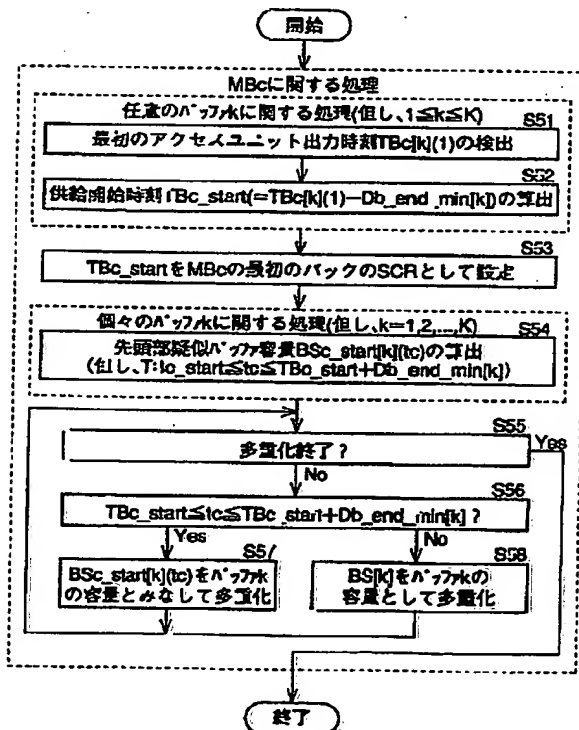 開始
MBcに関する処理
任意のバッファkに関する処理(但し、1≦k≦K)
S51
最初のアクセスユニット出力時刻TBc[k](1)の検出
S52
供給開始時刻TBc_start(=TBc[k](1)−Db_end_min[k])の算出
S53
TBc_startをMBcの最初のパックのSCRとして設定
個々のバッファkに関する処理(但し、k=1,2,...,K)
S54
先頭部疑似バッファ容量BSc_start[k](tc)の算出
(但し、TBc_start≦tc≦TBc_start+Db_end_min[k])
S55
多重化終了?
Yes
No
S56
TBc_start≦tc≦TBc_start+Db_end_min[k]?
Yes
No
S57
BSc_start[k](tc)をバッファk
の容量とみなして多重化
S58
BS[k]をバッファkの
容量として多重化
終了